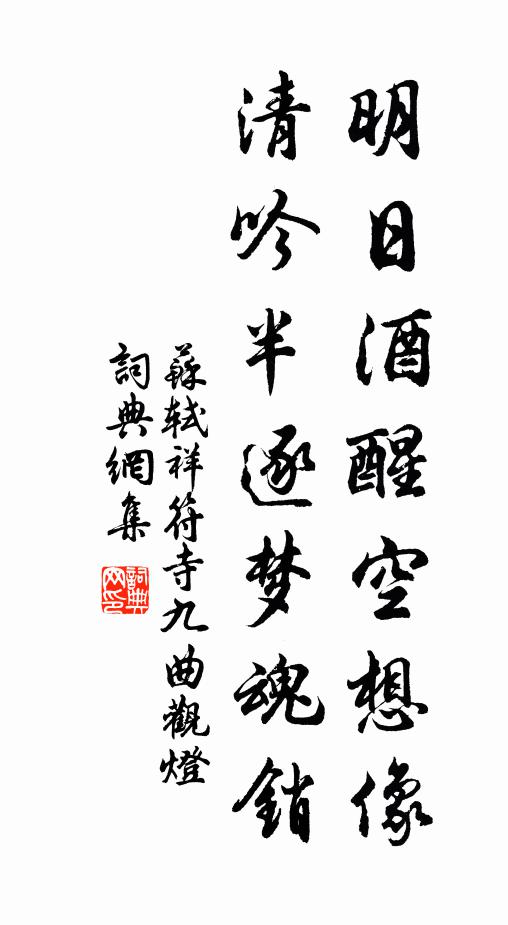 明日酒醒空想像
清吟半逐梦魂銷
蘇軾祥符寺九曲觀燈
詞典網集
詞典网印